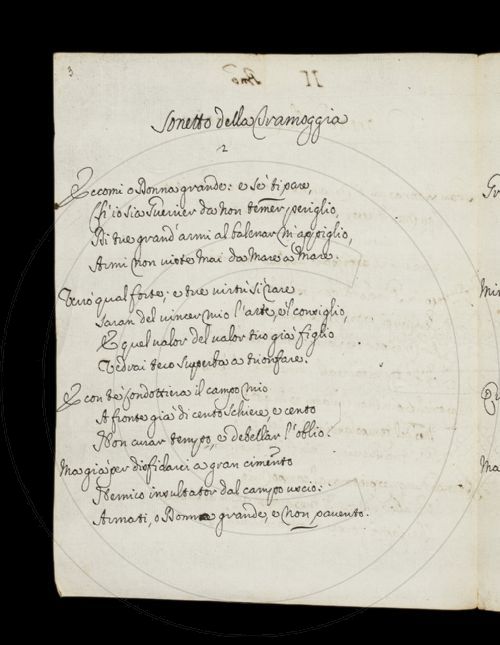 3
II
Sonetto della Tramoggia
2
Eccomi o Donna grande: e se ti pare,
Ch'io sia Guerrier da non temer periglio,
Di tue grand'armi al balenar m'appiglio,
Armi non viste mai da Mare a Mare.
Verrò qual forte, e tue virtù sì rare
Saran del vincer mio l'arte, e'l consiglio,
E quel valor del valor tuo già figlio
Vedrai teco superba a trionfare.
E con te condottiera il campo mio
A fronte già di cento schiere e cento
Non curar tempo, e debellar l'oblio.
Ma già per disfidarci a gran cimento
Nemico insultator dal campo uscio:
Armati, o Donna grande, e non pavento.
Gr
Ma